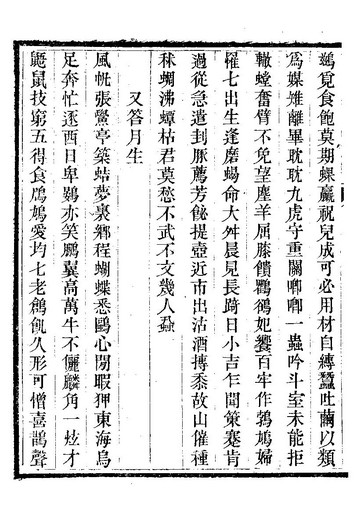 鵶覓食飽莫期蜾蠃祝兒成可必用材自縳蠶吐繭以類
爲媒雉離畢耽耽九虎守重關唧唧一蟲吟斗室未能拒
轍螳奮臂不免望塵羊屈膝饋鸎鵒妃饗百牢作鶉鳩婦
催七出生逢磨蝎命大舛晨見長踦日小吉乍聞策蹇肯
過從急遣封豚薦芳飶提壺近市出沽酒摶黍故山催種
秫蜩沸蟑枯君莫愁不武不文幾人蝨
又答月生
風㡛張鱟亭築蛣夢裏鄉程蝴蝶悉鷗心閒暇狎東海烏
足奔忙逐西日卑鷃亦笑鵬翼高萬牛不儷麟角一炫才
鼫鼠技窮五得食鳲鳩愛均七老鶬飢久形可憎喜鵲聲